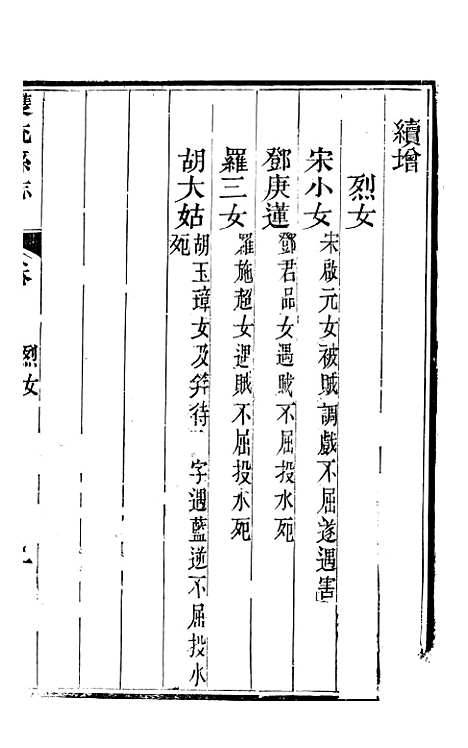 續增
烈女
宋小女 宋啟元女被賊調戲不屈遂遇害
鄧庚蓮 鄧君品女遇賊不屈投水死
羅三女 羅施超女遇賊不屈投水死
胡大姑 胡玉璋女及笄待 字遇藍逆不屈投水
死
雙流縣志
烈女